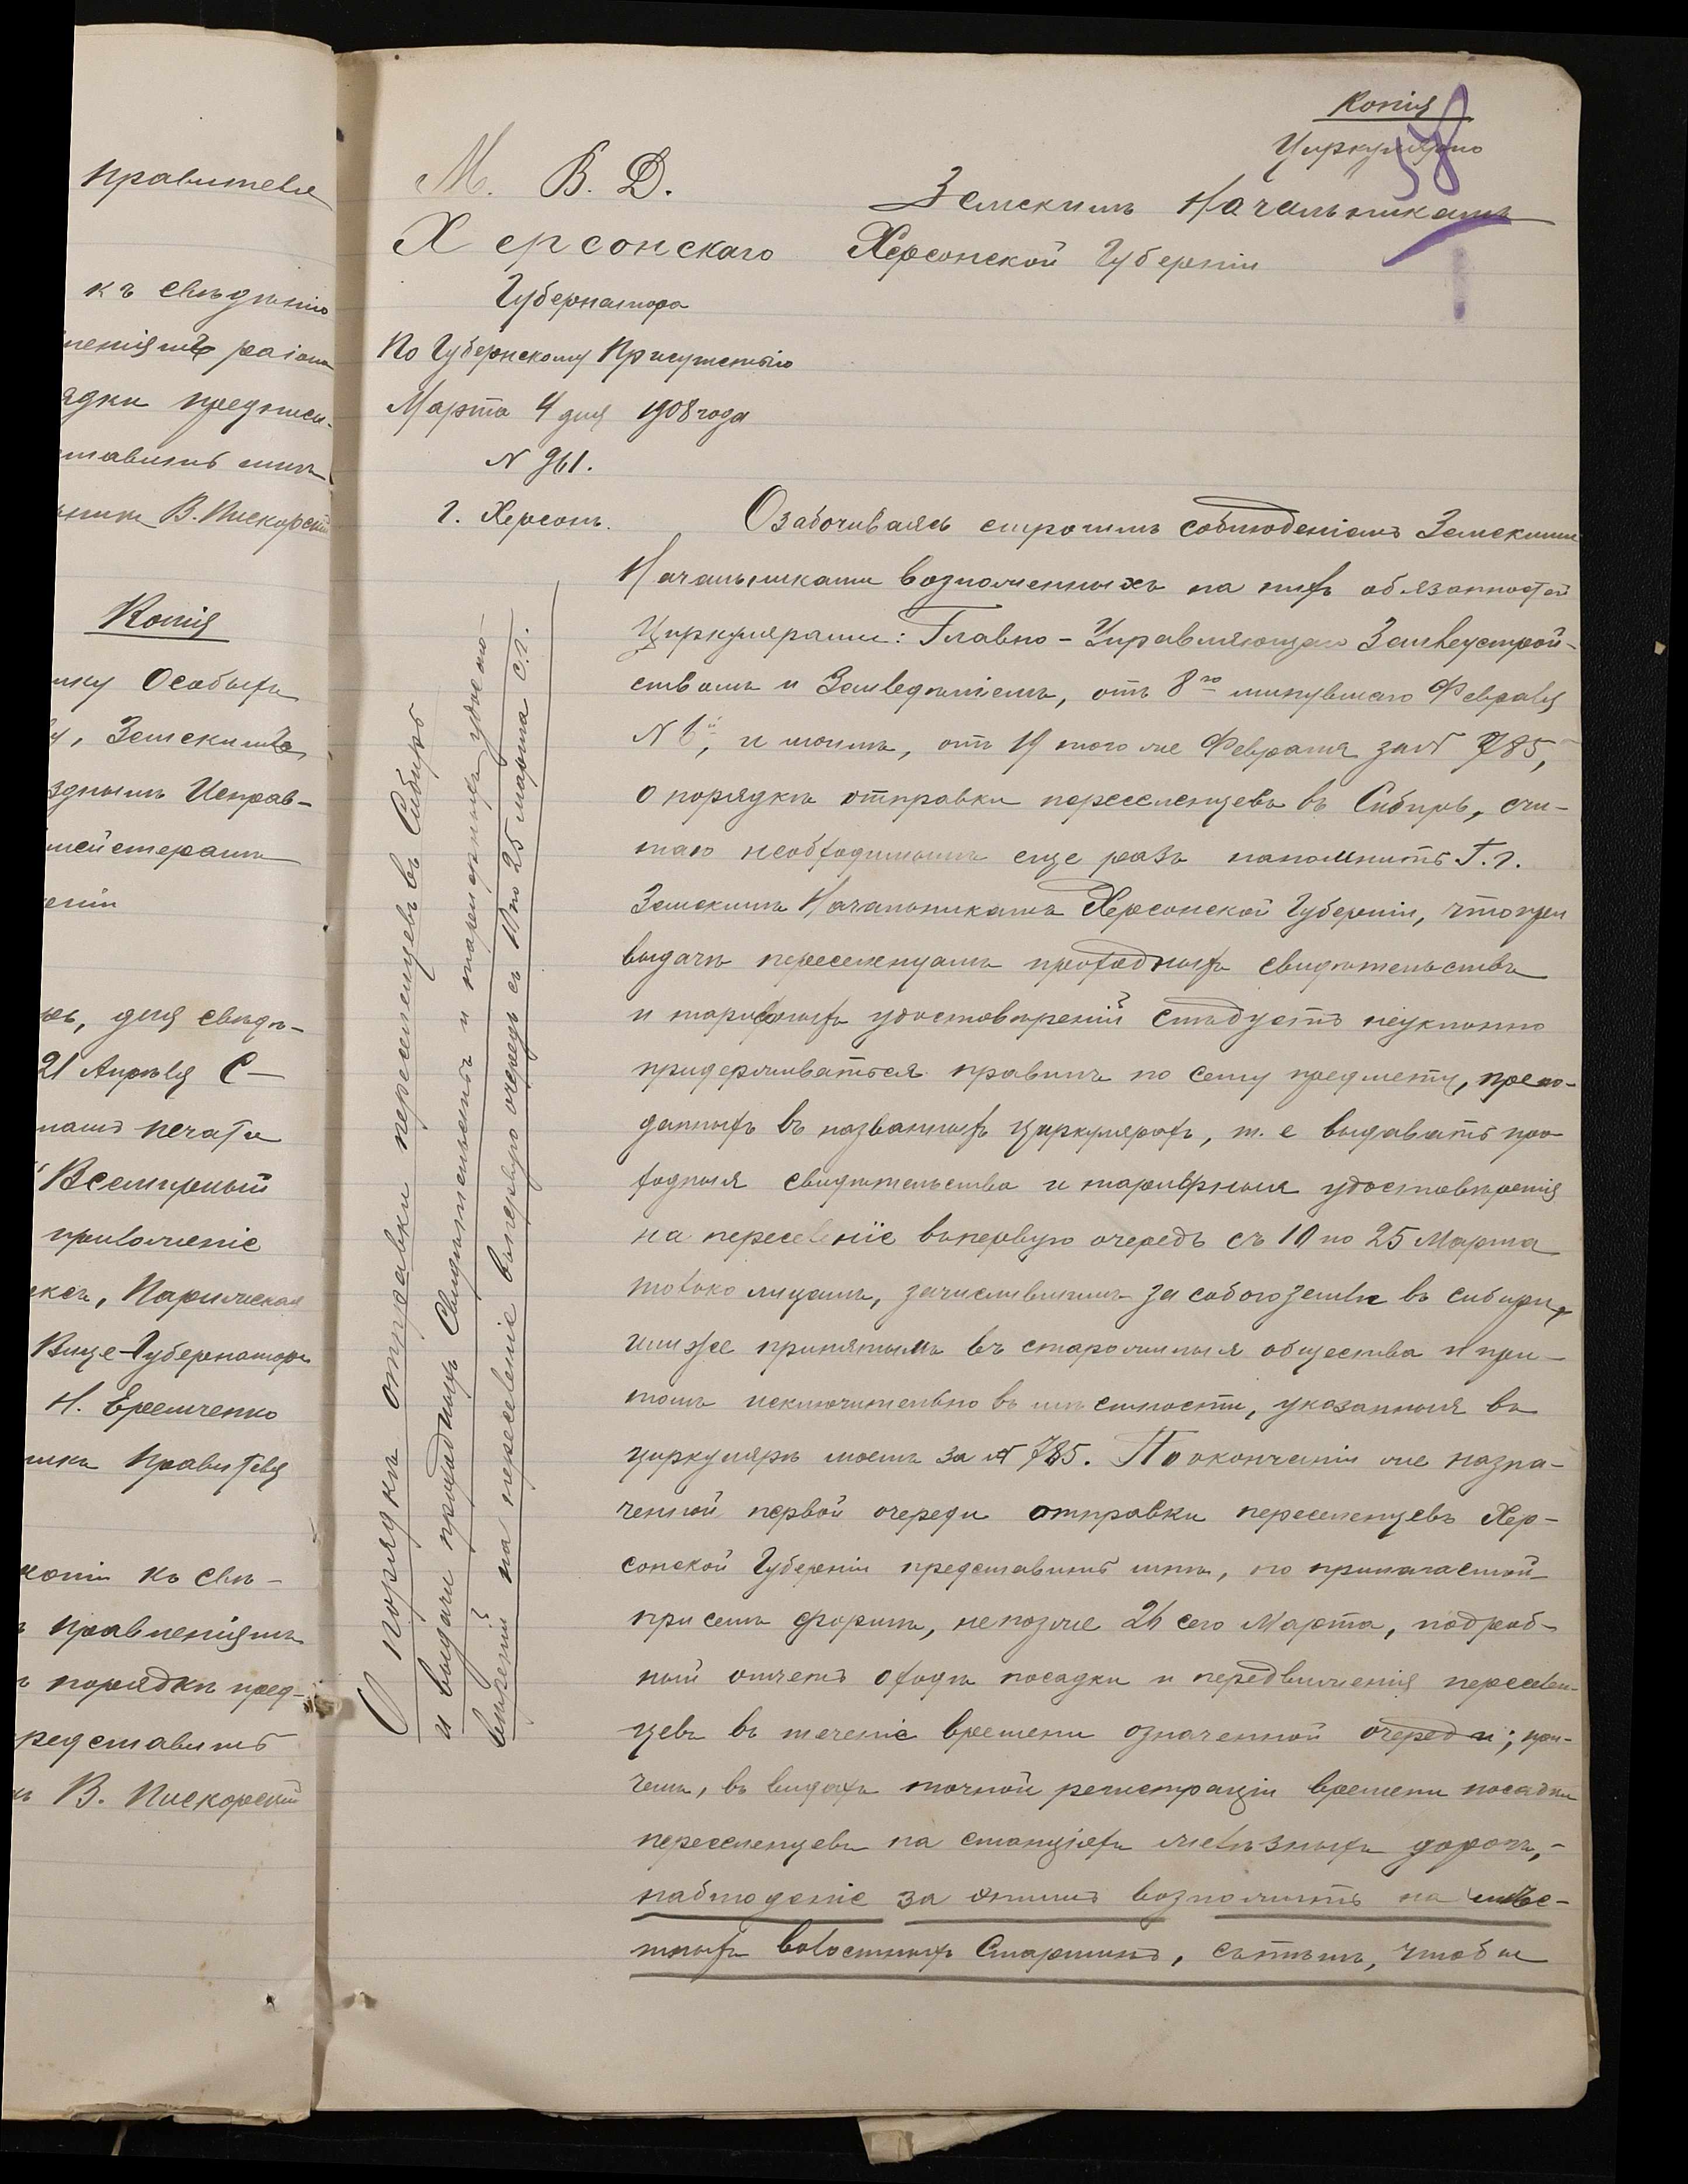 правителя
къ свѣдѣнію
леніямъ раіона
ядки предписы-
ставить мнѣ
В. Пискорскій
Копія
нику Особыхъ
у, Земскимъ
ѣзднымъ Исправ-
мейстерамъ
ерніи
нъ, для свѣдѣ-
21 Апрѣля С-
намъ печати
"Всемірный
приложеніе
Парижская
Вице-Губернаторъ
Н. Еремченко
Правителя
копіи къ свѣ-
ъ правленіямъ
ъ порядкѣ пред-
редставить
В. Пискорскій
Копія
58
Циркулярно
М. В. Д.
Херсонскаго
Губернатора
По Губернскому Присутствію
Марта 4 дня 1908 года
N 961.
г. Херсонъ.
Земскимъ Начальникамъ
Херсонской Губерніи
О порядкѣ отправки переселенцевъ въ Сибирь
и выдачи проходныхъ Свидѣтельствъ и тарифныхъ удосто-
вѣреній на переселеніе въ первую очередь съ 10 по 25 марта с.г.
Озабочиваясь строгимъ соблюденіемъ Земскими
Начальниками возложенныхъ на нихъ обязанностей
Циркулярами: Главно-Управляющаго Землеустрой-
ствомъ и Земледѣліемъ, отъ 8го минувшаго Февраля
N 6й, и моимъ, отъ 19 того же Февраля за N 785,
о порядкѣ отправки переселенцевъ въ Сибирь, счи-
таю необходимымъ еще разъ напомнить Г.г.
Земскимъ Начальникамъ Херсонской Губерніи, что при
выдачѣ переселенцамъ проходныхъ свидѣтельствъ
и тарифныхъ удостовѣреній слѣдуетъ неуклонно
придерживаться правилъ по сему предмету, препо-
данныхъ въ названныхъ циркулярахъ, т. е выдавать про-
ходныя свидѣтельства и тарифныя удостовѣренія
на переселеніе въ первую очередь съ 10 по 25 Марта
только лицамъ, зачислившимъ за собою земли въ Сибири,
или же принятымъ въ старожилыя общества и при-
томъ исключительно въ мѣстности, указанныя въ
циркулярѣ моемъ за N 785. По окончаніи же назна-
ченной первой очереди отправки переселенцевъ Хер-
сонской Губерніи представить мнѣ, по прилагаемой
при семъ формѣ, не позже 26 сего Марта, подроб-
ный отчетъ о ходѣ посадки и передвиженія переселен-
цевъ въ теченіе времени означенной очереди; при-
чемъ, въ видахъ точной регистраціи времени посадки
переселенцевъ на станціяхъ желѣзныхъ дорогъ,-
наблюденіе за этимъ возложить на мѣс-
тныхъ волостныхъ Старшинъ, съ тѣмъ, чтобы